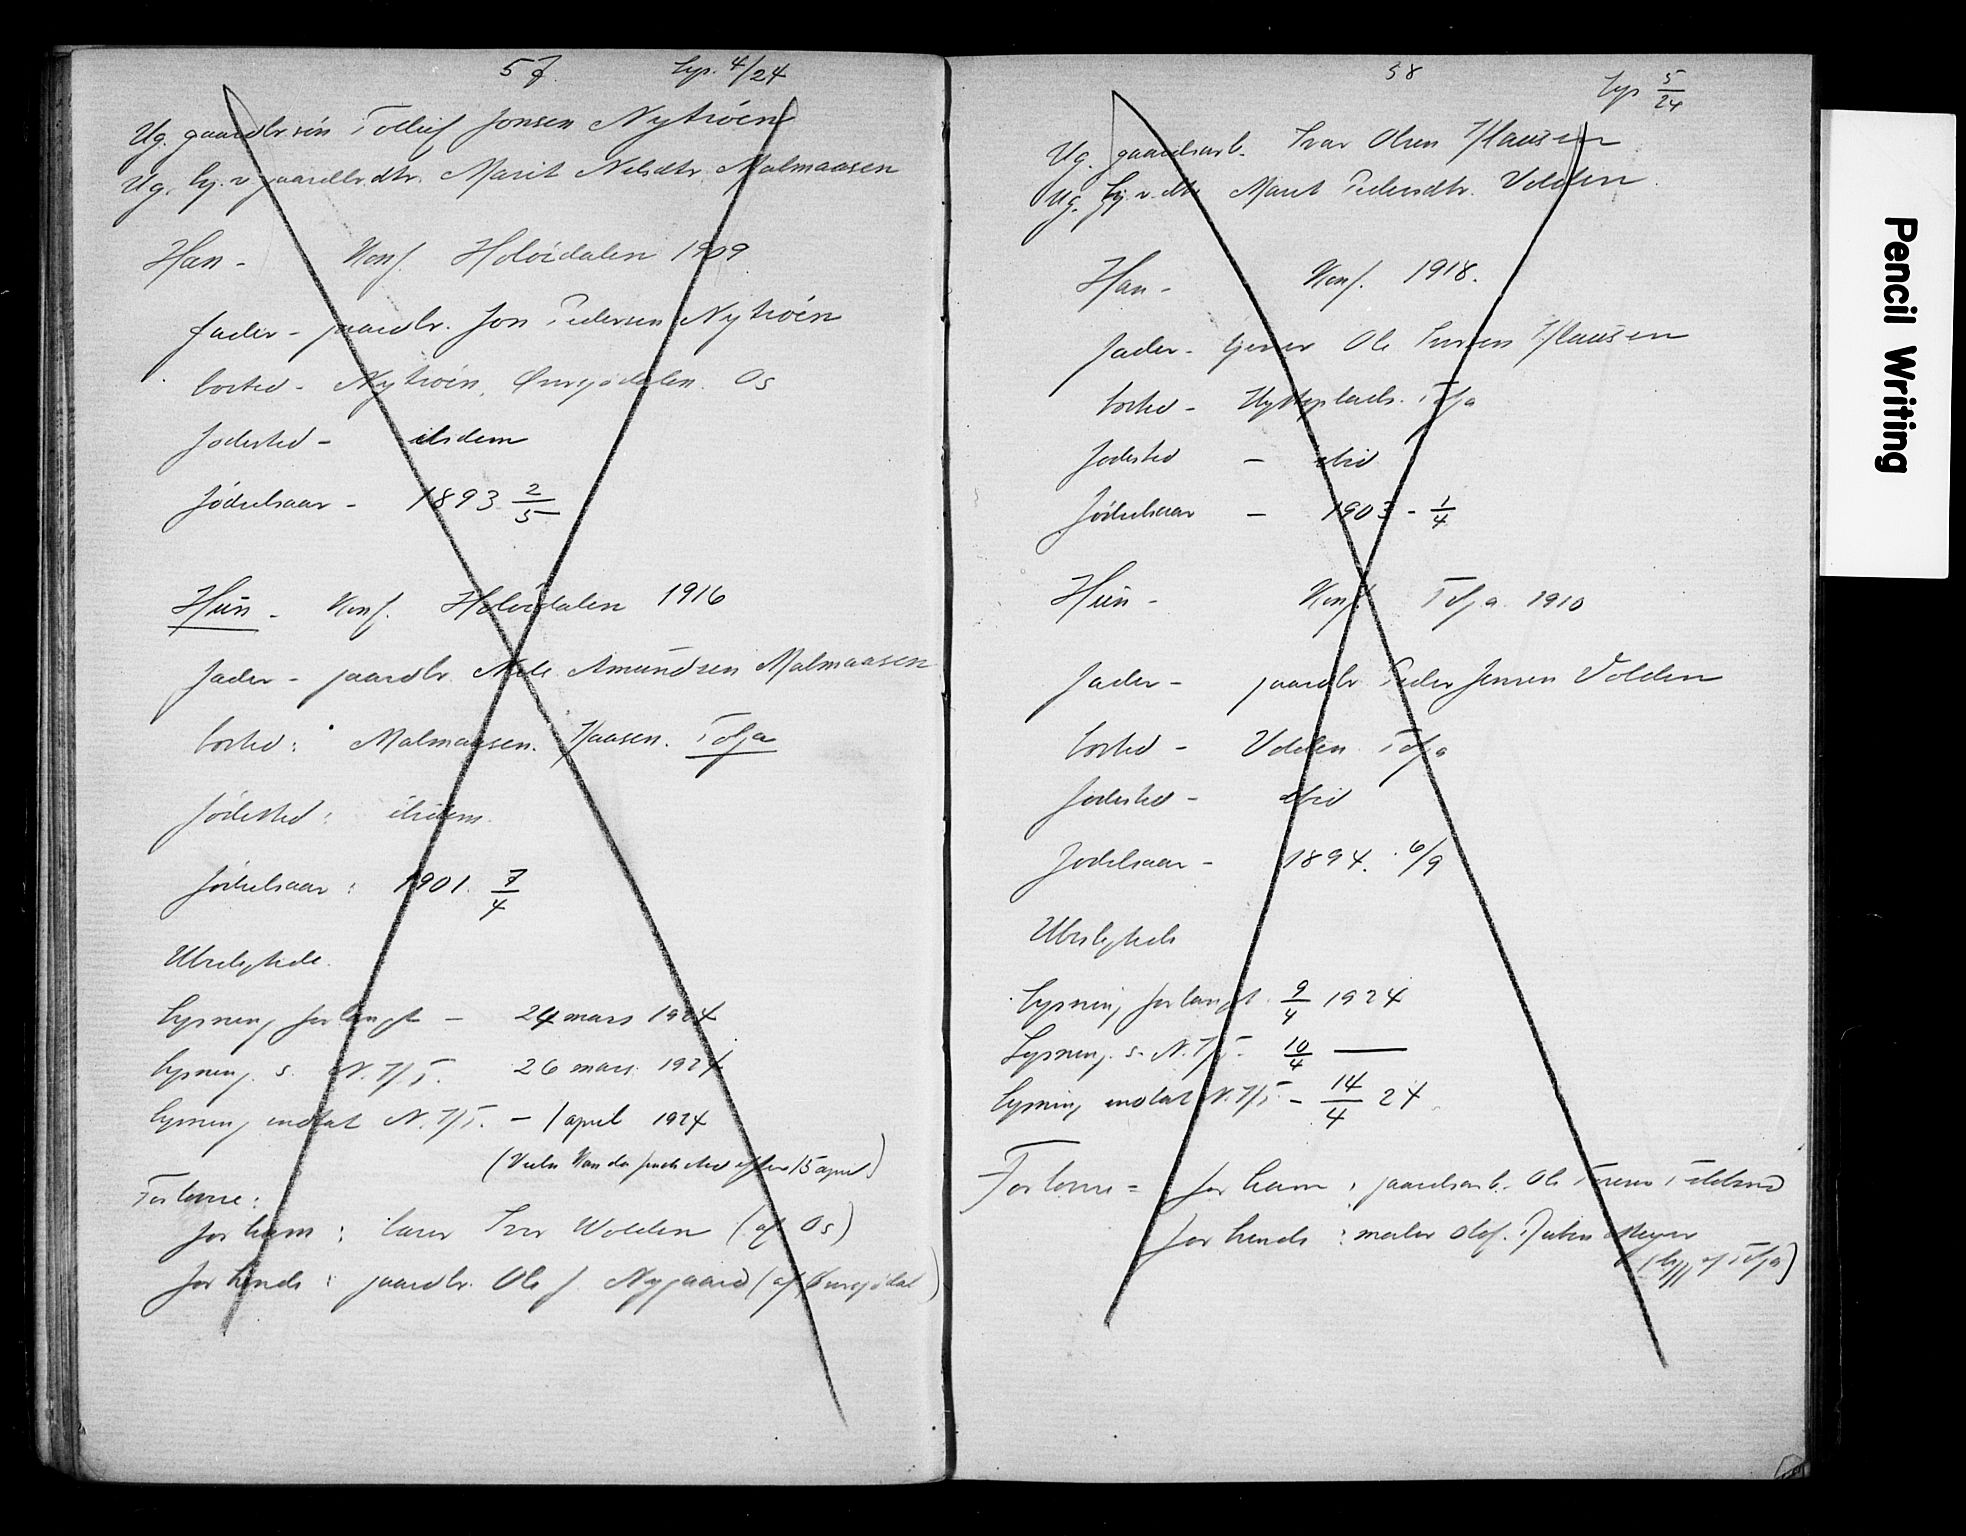 57. Lys. 4/24
Ug. gaardbr.søn Tollef Jonsen Nytrøen
Ug. hj.v. gaardbr.dtr. Marit Nilsdtr. Malmaasen
Han - Konf. Holøidalen 1909
fader - gaardbr. Jon Pedersen Nytrøen
bosted - Nytrøen, Øversjødalen. Os
fødested - ibidem
fødselsaar - 1893 2/5
Hun - Konf. Holøidalen 1916
fader - gaardbr. Nils Amundsen Malmaasen
bosted: Malmaasen. Haasen. Tolga
fødested: ibidem
fødselsaar: 1901. 7/4
Ubeslegtede.
Lysning forlangt - 24 mars 1924
Lysning s. N. H/T. 26 mars 1924
Lysning indtat N. H/T. - 1 april 1924
(Vielse kan da finde sted efter 15 april)
Forlovere:
for ham: lærer Ivar Wolden (af Os)
for hende: gaardbr. Ole J. Nygaard (af Øversjødal)
58 Lys 5/24
Ug. gaardsarb. Ivar Olsen Hausen
Ug. hj.v. dtr. Marit Pedersdtr. Volden
Han - Konf. 1918.
fader - Ole Iversen Hausen
bosted - Hytteplads. Tolga
fødested - ibid
fødselsaar - 1903 - 1/4
Hun - Konf. Tolga 1910
fader - gaardbr Peder Jensen Volden
bosted - Volden Tolga
fødested - ibid
fødselsaar - 1894. 6/9
Ubeslegtede
Lysning forlangt. 9/4 1924
Lysning. s. N. H/T. 10/4 —
Lysning indtat N. H/T. - 14/4 24
Forlovere = for ham: gaardsarb. Ole
for hende: maler Olaf. Meyer
(begge af Tolga)
Pencil Writing